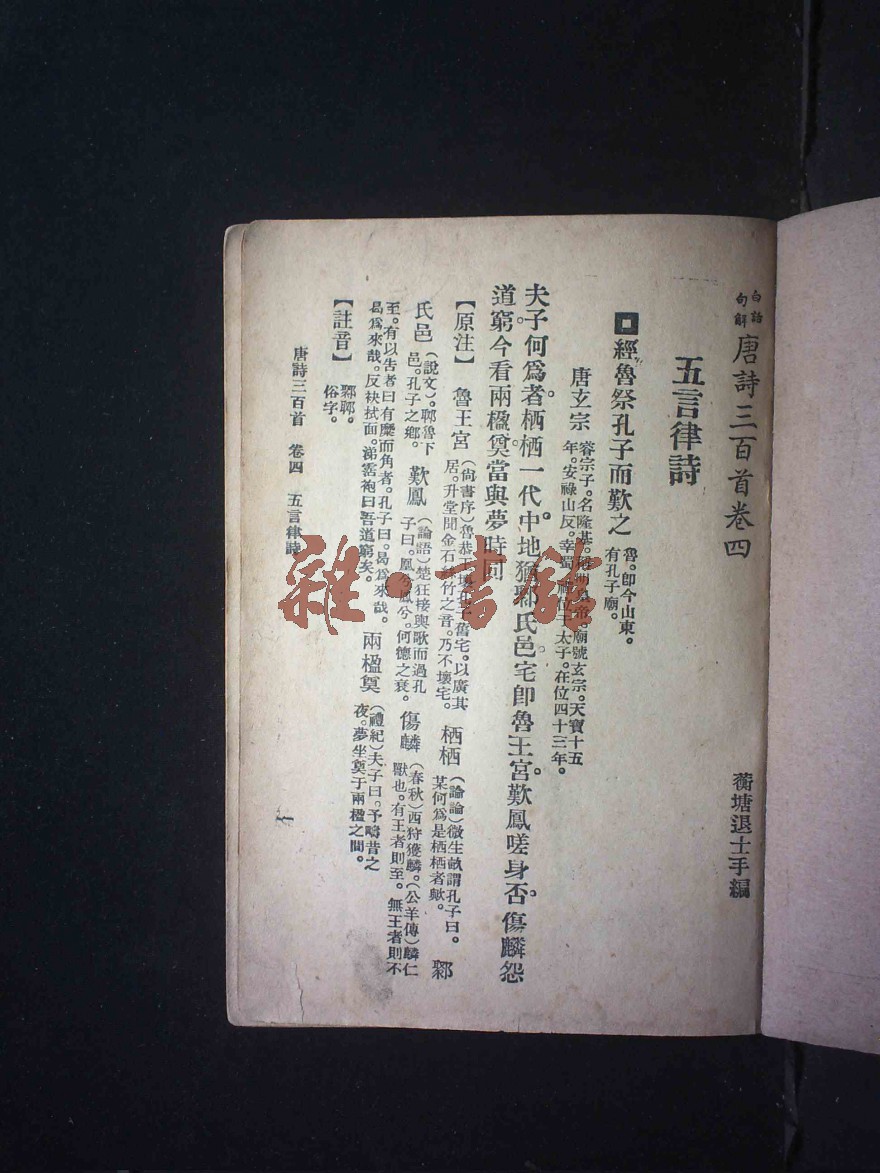 白話
句解
唐詩三百首卷四
蘅塘退士手編
五言律詩
經魯祭孔子而歎之
魯。卽今山東。
有孔子廟。
唐玄宗
睿宗子。名隆基。諡明皇帝。廟號玄宗。天寶十五
年。安祿山反。幸蜀。禪位于太子。在位四十三年。
夫子何爲者。栖栖一代中。地猶鄹氏邑。宅卽魯王宮。歎鳳嗟身否。傷麟怨
道窮。今看兩楹奠。當與夢時同
【原注】
魯王宮
(尙書序)魯恭王壞孔子舊宅。以廣其
居。升堂聞金石絲竹之音。乃不壞宅。
栖栖
(論論)微生畝謂孔子曰。
某何爲是栖栖者歟。
鄹
氏邑
(說文)。鄹魯下
邑。孔子之鄉。
歎鳳
(論語)楚狂接輿歌而過孔
子曰。鳳兮鳳兮。何德之衰。
傷麟
(春秋)西狩獲麟。(公羊傳)麟仁
獸也。有王者則至。無王者則不
至。有以吿者曰有麇而角者。孔子曰。曷爲來哉。
曷爲來哉。反袂拭面。涕霑袍曰吾道窮矣。
兩楹奠
(禮紀)夫子曰。予疇昔之
夜。夢坐奠于兩楹之間。
【註音】
鄹郰。
俗字。
唐詩三百首 卷四 五言律詩
一
雜·書館